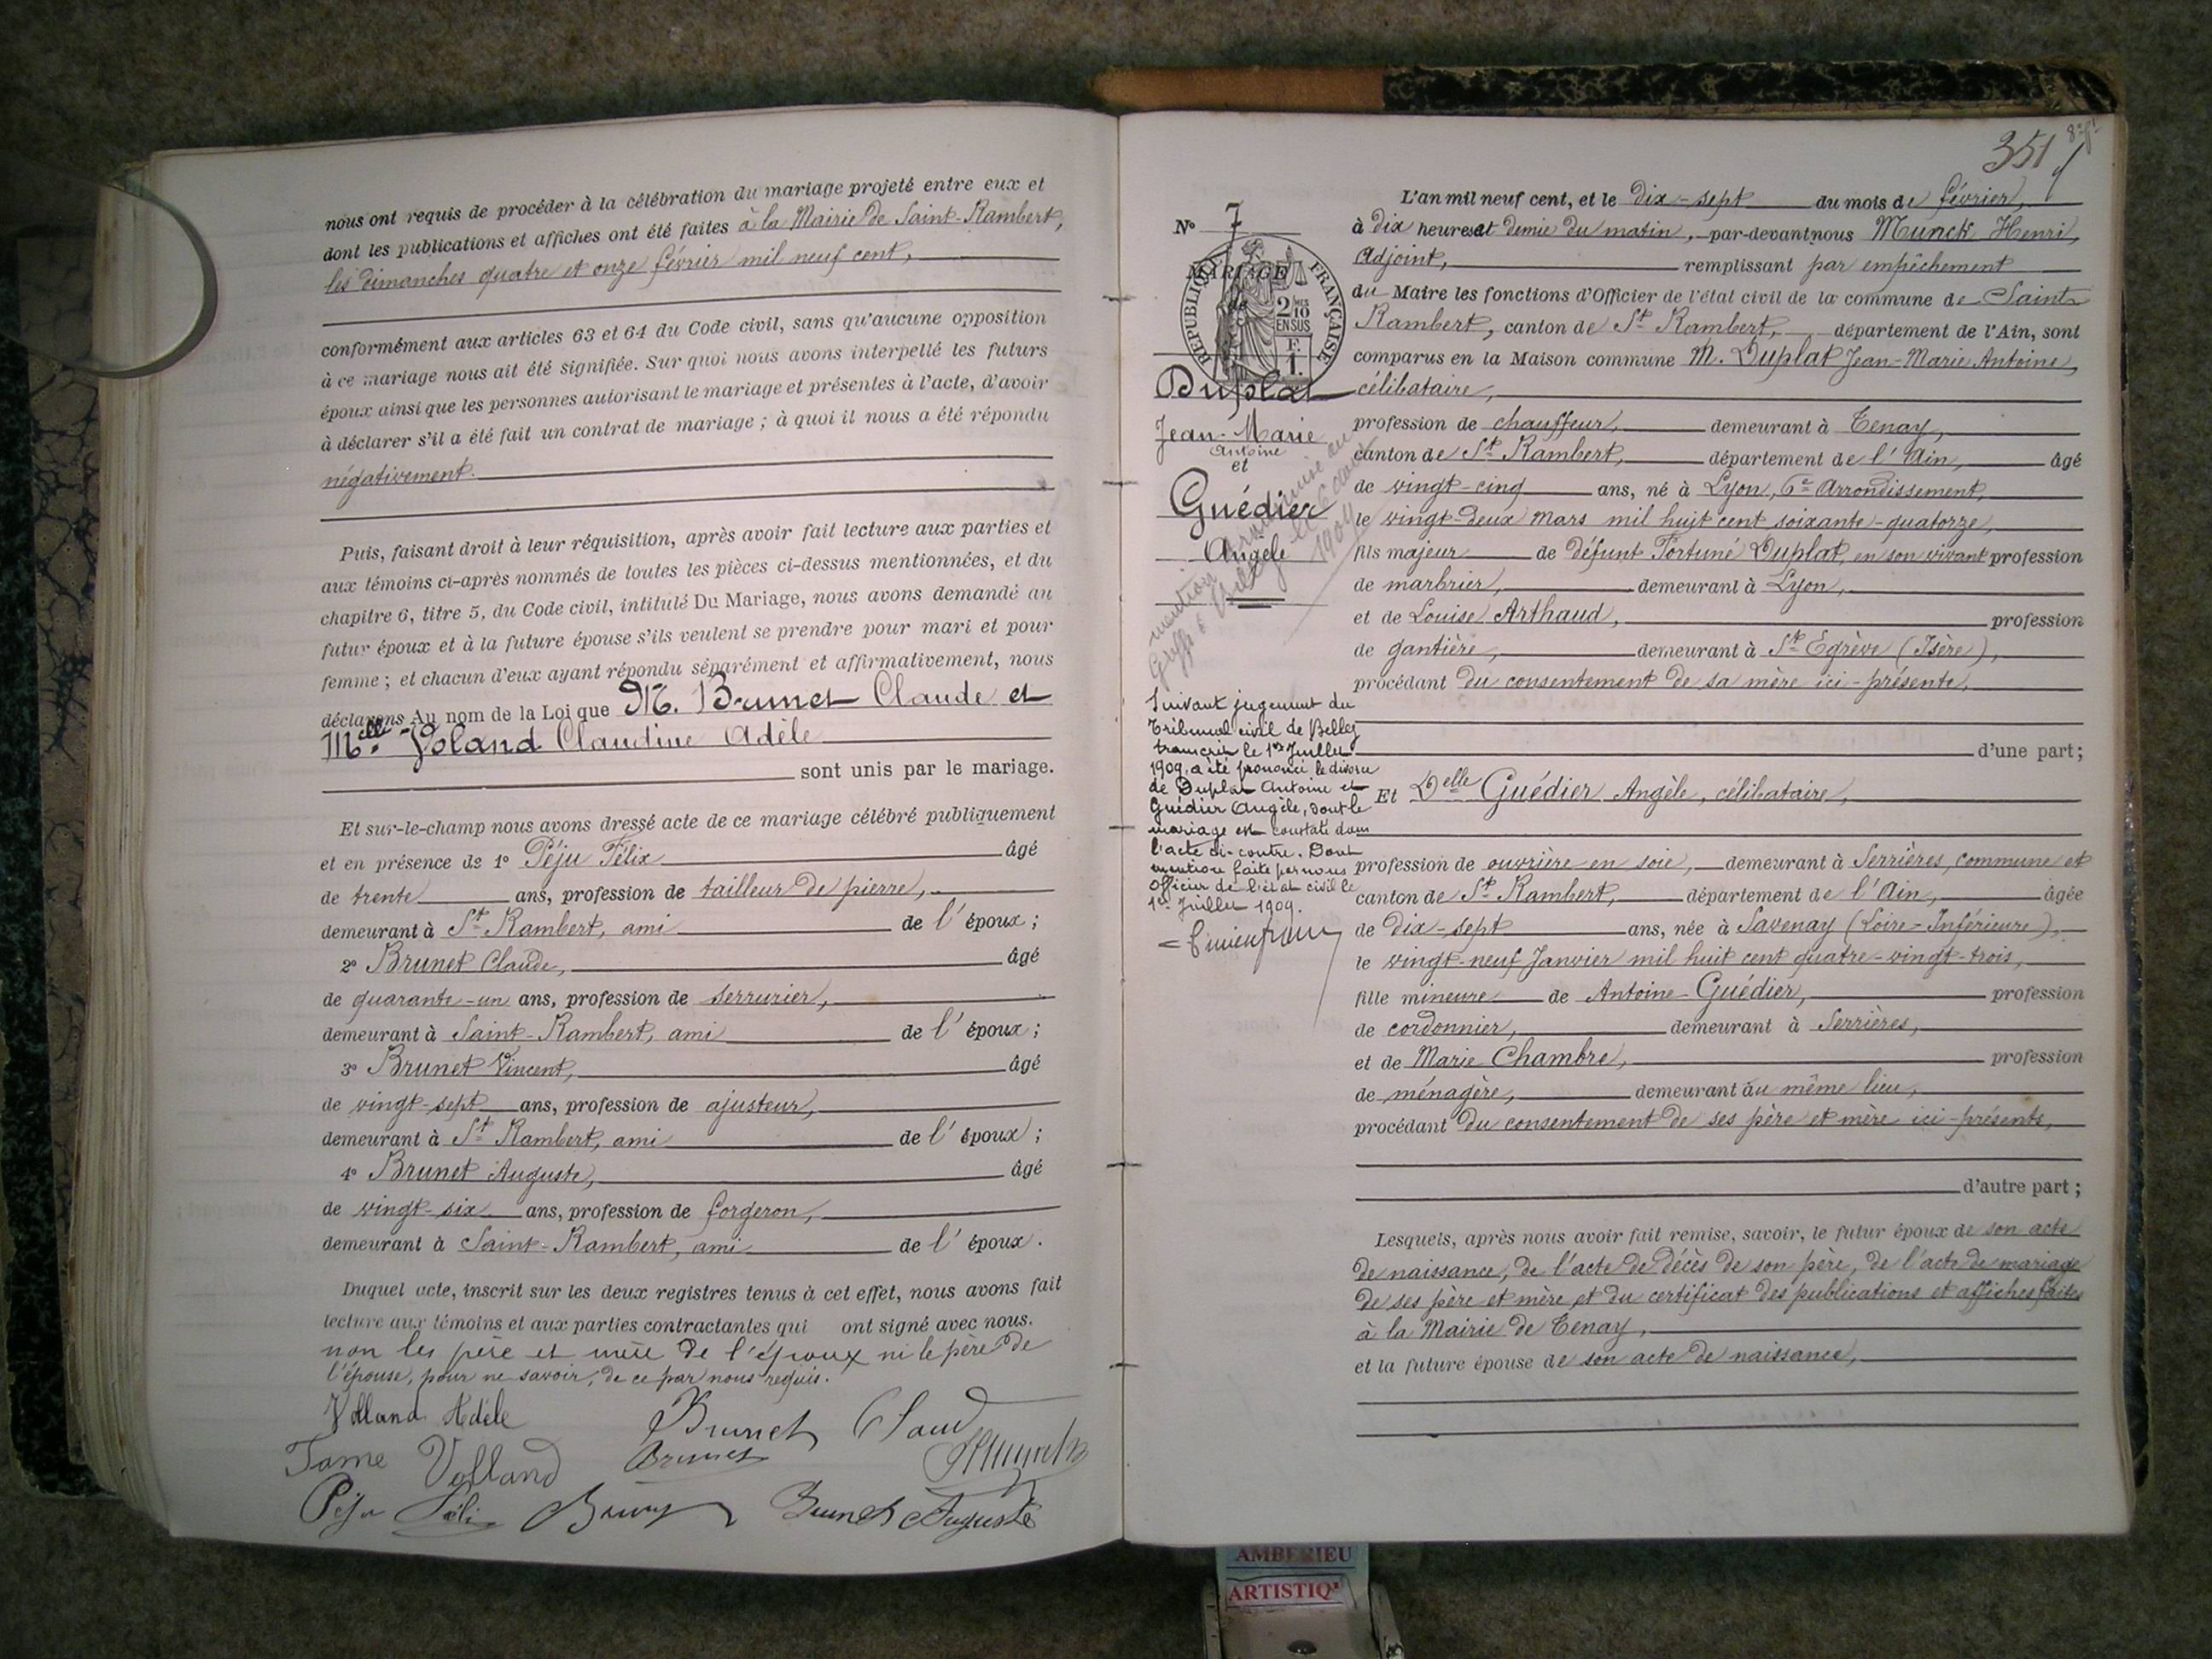 nous ont requis de procéder à la célébration du mariage projeté entre eux et
dont les publications et affiches ont été faites à la Mairie de Saint-Rambert,
les dimanches quatre et onze février mil neuf cent,
conformément aux articles 63 et 64 du Code civil, sans qu'aucune opposition
à ce mariage nous ait été signifiée. Sur quoi nous avons interpellé les futurs
époux ainsi que les personnes autorisant le mariage et présentes à l'acte, d'avoir
à déclarer s'il a été fait un contrat de mariage ; à quoi il nous a été répondu
négativement.
Puis, faisant droit à leur réquisition, après avoir fait lecture aux parties et
aux témoins ci-après nommés de toutes les pièces ci-dessus mentionnées, et du
chapitre 6, titre 5, du Code civil, intitulé Du Mariage, nous avons demandé au
futur époux et à la future épouse s'ils veulent se prendre pour mari et pour
femme ; et chacun d'eux ayant répondu séparément et affirmativement, nous
déclarons Au nom de la Loi que M. Brunet Claude et
Melle Voland Claudine Adèle
sont unis par le mariage.
Et sur-le-champ nous avons dressé acte de ce mariage célébré publiquement
et en présence de 1° Péju Félix âgé
de trente ans, profession de tailleur de pierre,
demeurant à St Rambert, ami de l'époux ;
2° Brunet Claude, âgé
de quarante-un ans, profession de serrurier,
demeurant à Saint-Rambert, ami de l'époux ;
3° Brunet Vincent, âgé
de vingt-sept ans, profession de ajusteur,
demeurant à St Rambert, ami de l'époux ;
4° Brunet Auguste, âgé
de vingt-six ans, profession de forgeron,
demeurant à Saint-Rambert, ami de l'époux.
Duquel acte, inscrit sur les deux registres tenus à cet effet, nous avons fait
lecture aux témoins et aux parties contractantes qui ont signé avec nous.
non les père et mère de l'époux ni le père de
l'épouse, pour ne savoir, de ce par nous requis.
Volland Adèle
Brunet Claud
Fame Volland
Brunet
HMunck
Péju Féli
Brunet Auguste
351
N° 7
MARIAGE
de
RÉPUBLIQUE FRANÇAISE
2/10 MES
EN SUS
F.
1.
Duplat
Jean-Marie
Antoine
et
Guédier
Angèle
1904
Suivant jugement du
Tribunal civil de Belley
transcrit le 1er Juillet
1909. a été prononcé le divorce
de Duplat Antoine et
Guédier Angèle, dont le
mariage est constaté dans
l'acte ci-contre. Dont
mention faite par nous
Officier de l'état civil le
1er Juillet 1909.
L'an mil neuf cent, et le dix-sept du mois de février,
à dix heures et demie du matin, par-devant nous Munck Henri,
Adjoint, remplissant par empêchement
du Maire les fonctions d'Officier de l'état civil de la commune de Saint-
Rambert, canton de St Rambert, département de l'Ain, sont
comparus en la Maison commune M. Duplat Jean-Marie Antoine,
célibataire,
profession de chauffeur, demeurant à Tenay,
canton de St Rambert, département de l'Ain, âgé
de vingt-cinq ans, né à Lyon, 6e Arrondissement,
le vingt-deux Mars mil huit cent soixante-quatorze,
fils majeur de défunt Fortuné Duplat, en son vivant profession
de marbrier, demeurant à Lyon,
et de Louise Arthaud, profession
de gantière, demeurant à St Egrève (Isère),
procédant du consentement de sa mère ici-présente,
d'une part ;
Et Delle Guédier Angèle, célibataire,
profession de ouvrière en soie, demeurant à Serrières, commune et
canton de St Rambert, département de l'Ain, âgée
de dix-sept ans, née à Savenay (Loire-Inférieure),
le vingt-neuf Janvier mil huit cent quatre-vingt-trois,
fille mineure de Antoine Guédier, profession
de cordonnier, demeurant à Serrières,
et de Marie Chambre, profession
de ménagère, demeurant au même lieu,
procédant du consentement de ses père et mère ici-présents,
d'autre part ;
Lesquels, après nous avoir fait remise, savoir, le futur époux de son acte
de naissance, de l'acte de décès de son père, de l'acte de mariage
de ses père et mère et du certificat des publications et affiches faites
à la Mairie de Tenay,
et la future épouse de son acte de naissance,
AMBERIEU
ARTISTIQ'